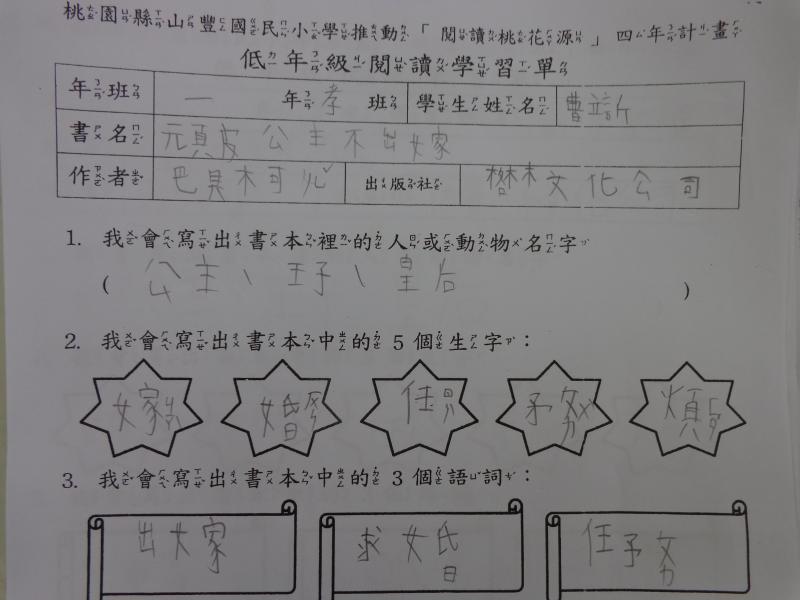 桃園縣山豐國民小學推動「閱讀桃花源」四年計畫
低年級閱讀學習單
年班 一 年 孝 班 學生姓名 曹
書名 元頑皮公主不出嫁
作者 巴貝 出版社 格林文化公司
1. 我會寫出書本裡的人或動物名字
( 公主、王子、皇后 )
2. 我會寫出書本中的 5 個生字:
嫁ㄐㄧㄚˋ 婚ㄏㄨㄣ 任ㄖㄣˋ 務ㄨˋ 煩ㄈㄢˊ
3. 我會寫出書本中的 3 個語詞:
出嫁 求婚 任務